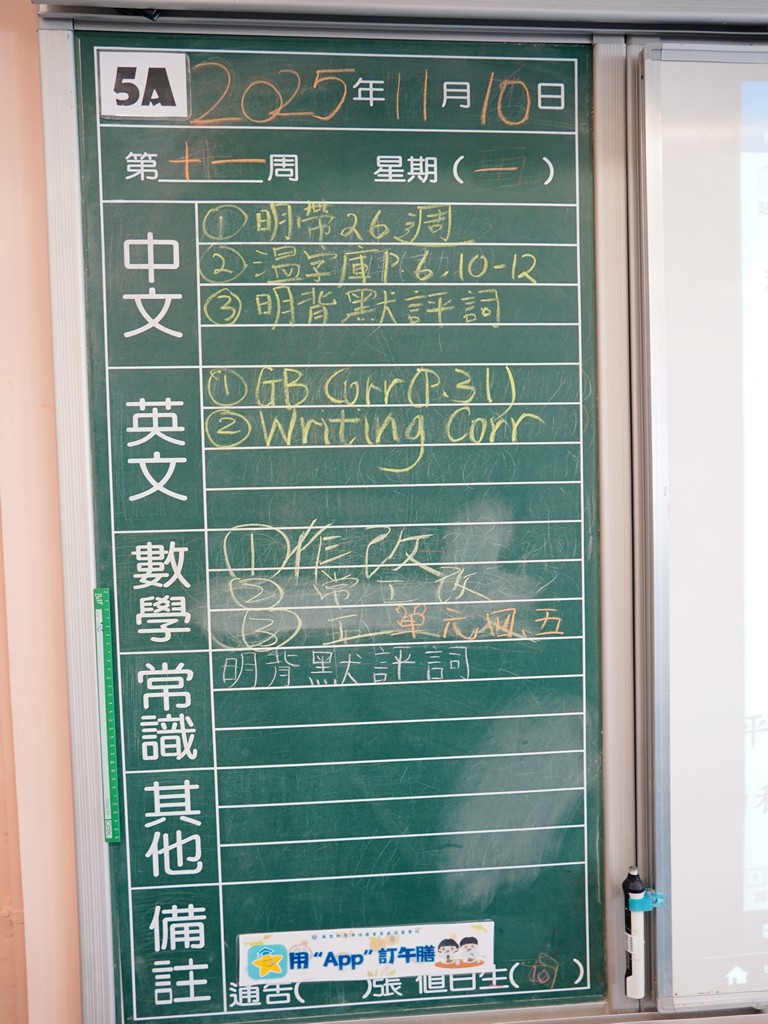 5A 2025年11月10日
第十一周 星期(一)
中文
①明帶26週
②溫字庫P6.10-12
③明背默評詞
英文
①GB Corr(P.31)
②Writing Corr
數學
①作改
②常工改
③五 單元四、五
常識
明背默評詞
其他
備註
用“App”訂午膳
通告( )張 值日生(10)